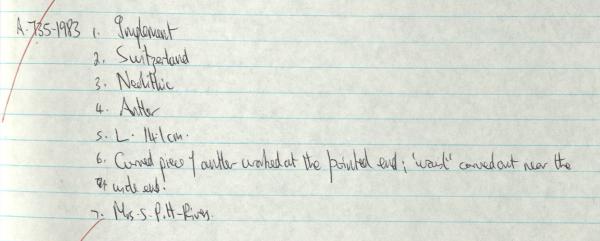 A.735-1983 1. Implement
2. Switzerland
3. Neolithic
4. Antler
5. L. 14.1cm.
6. Curved piece of antler worked at the pointed end; "waist" carved out near the
wide end.
7. Mrs. S. P.H-Rivers.